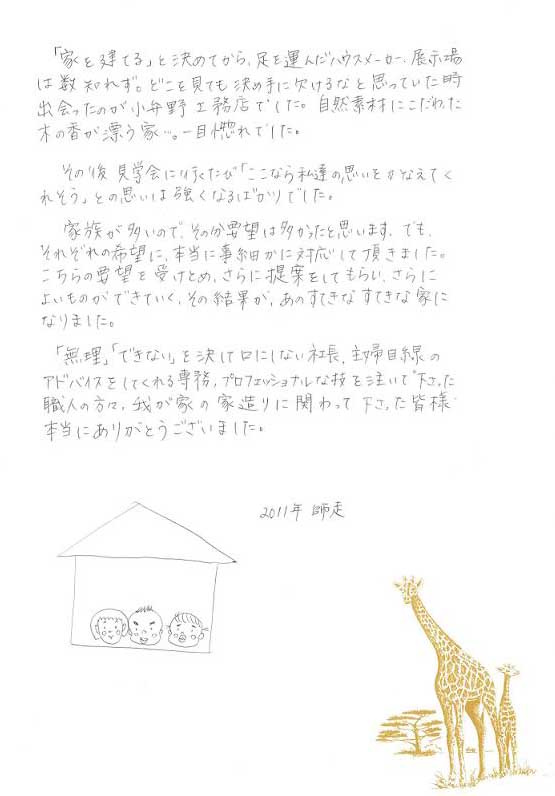 「家を建てる」と決めてから、足を運んだハウスメーカー、展示場
は数知れず。どこを見ても決め手に欠けるなと思っていた時
出会ったのが小弁野工務店でした。自然素材にこだわった
木の香が漂う家…。一目惚れでした。
その後見学会に行くたび「ここなら私達の思いをかなえてく
れそう」との思いは強くなるばかりでした。
家族が多いので、その分要望は多かったと思います。でも、
それぞれの希望に、本当に事細かに対応して頂きました。
こちらの要望を受けとめ、さらに提案をしてもらい、さらに
よいものができていく、その結果が、あのすてきなすてきな家に
なりました。
「無理」「できない」を決して口にしない社長、主婦目線の
アドバイスをしてくれる専務、プロフェッショナルな技を注いで下さった
職人の方々、我が家の家造りに関わって下さった皆様
本当にありがとうございました。
2011年 師走